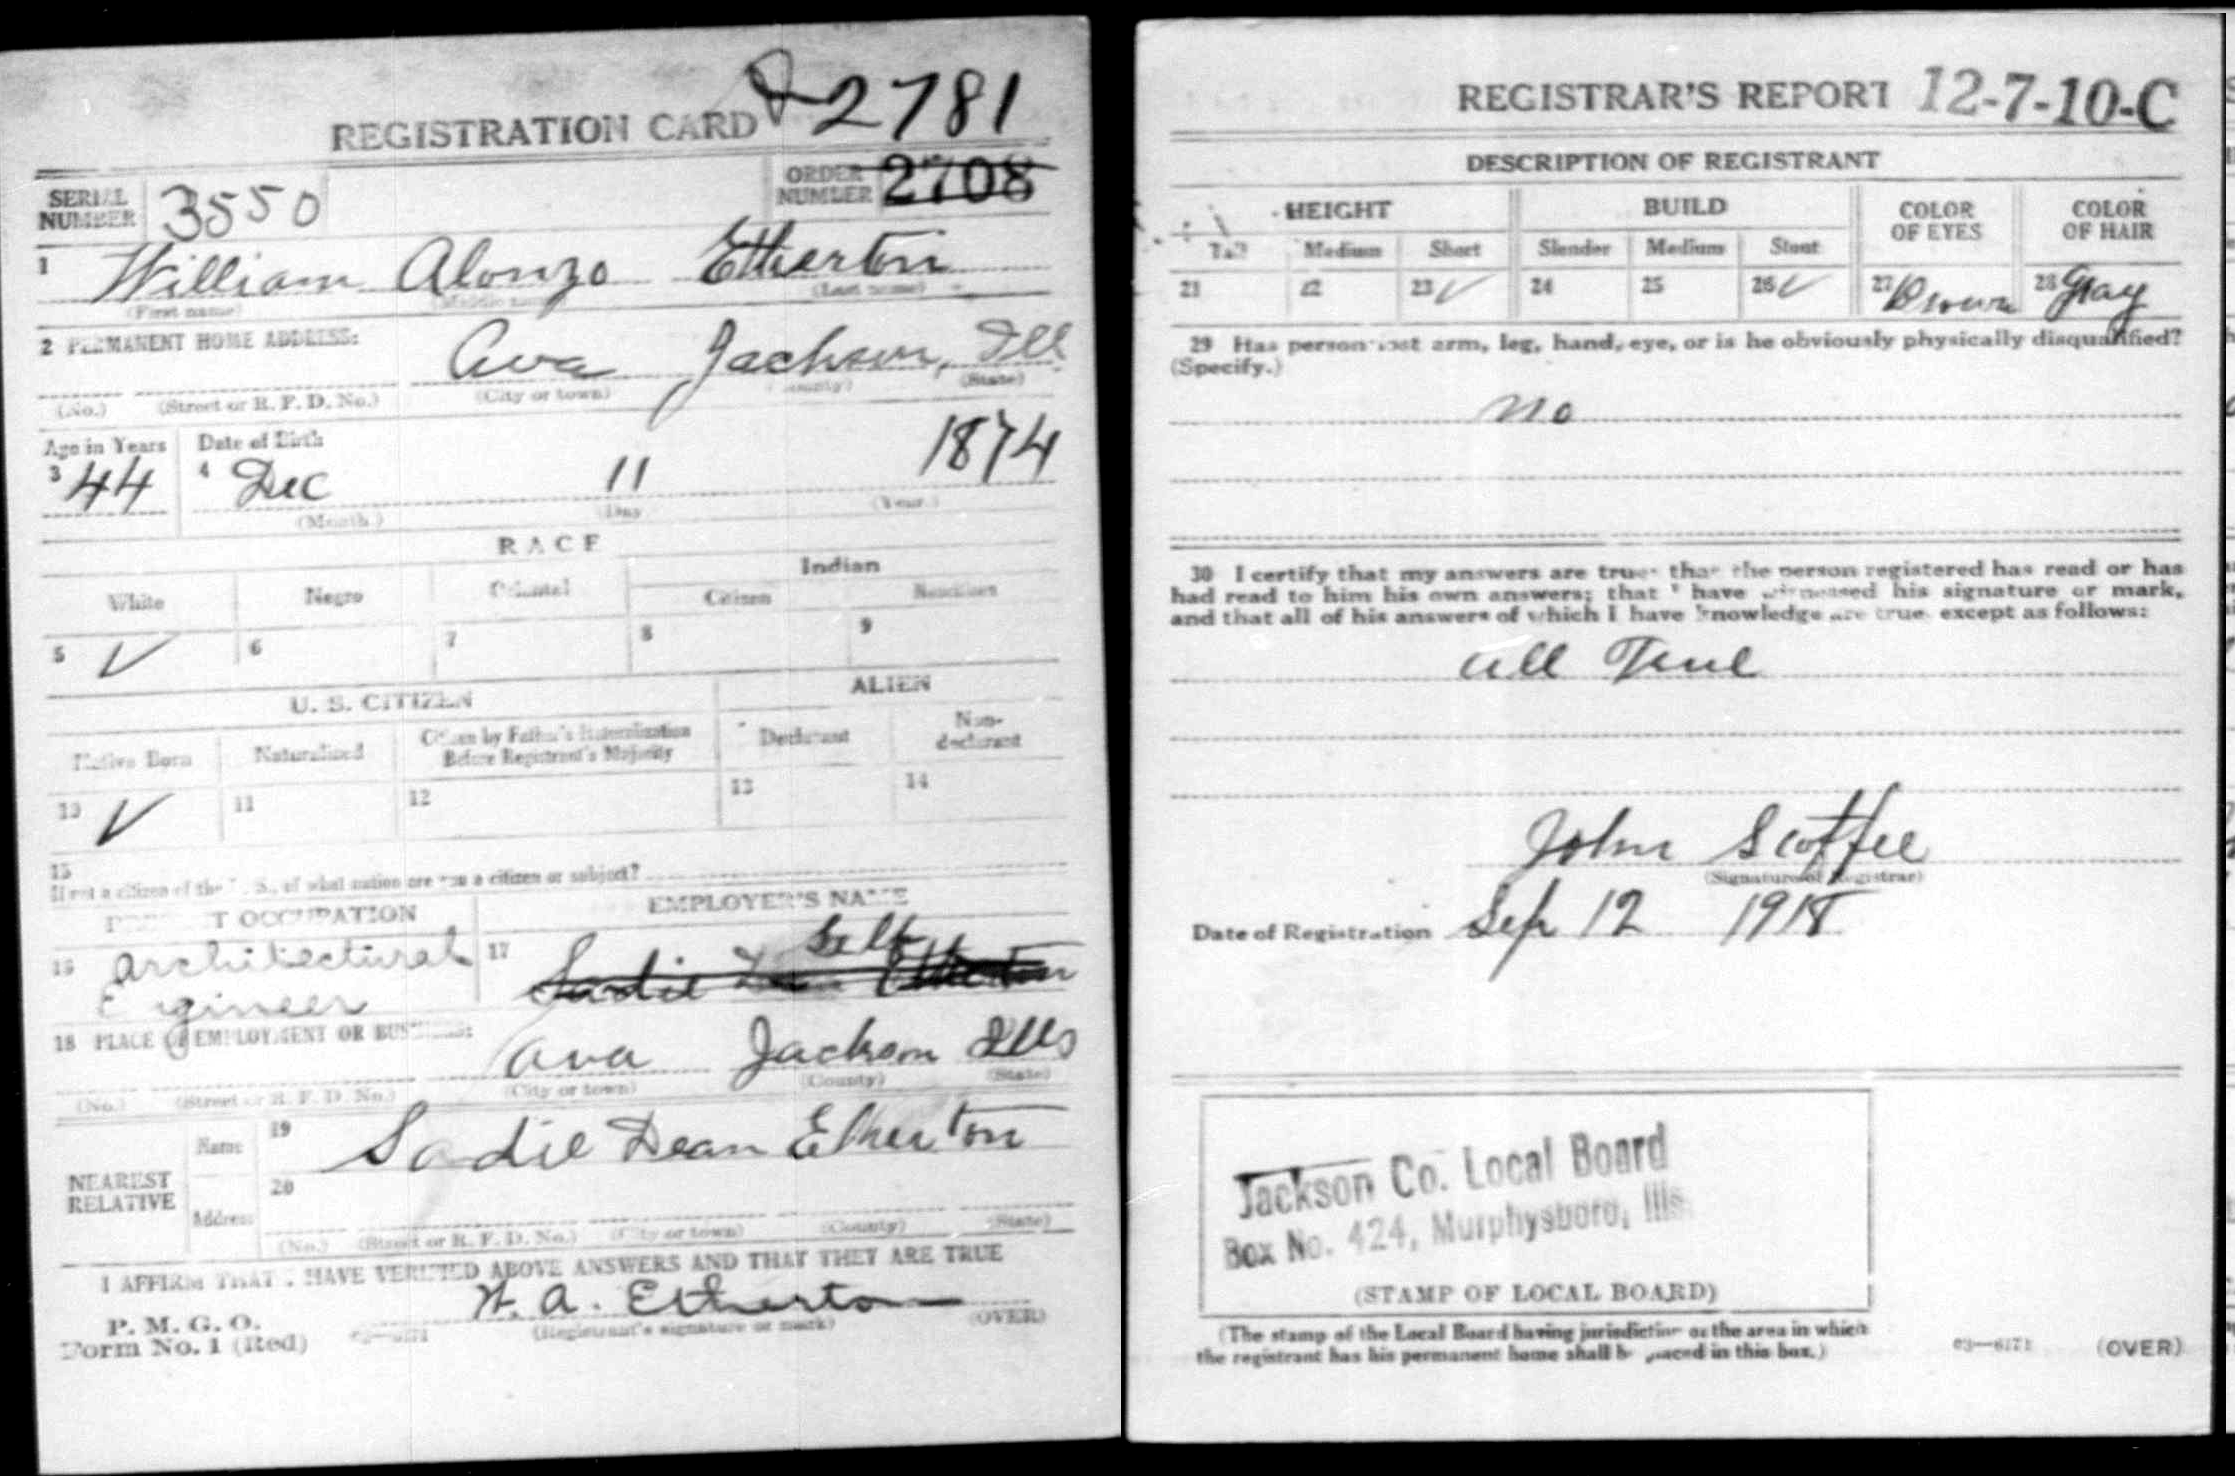 REGISTRATION CARD 2781
SERIAL NUMBER 3550 ORDER NUMBER 2708
1 William Alonzo Etherton
(First name) (Middle name) (Last name)
2 PERMANENT HOME ADDRESS: Ava Jackson, Ill
(No.) (Street or R. F. D. No.) (City or town) (County) (State)
Age in Years Date of Birth
3 44 4 Dec 11 1874
(Month.) (Day (Year.)
RACE
White Negro Oriental Indian
Citizen Noncitizen
5 V 6 7 8 9
U. S. CITIZEN ALIEN
Native Born Naturalized Citizen by Father's Naturalization Before Registrant's Majority Declarant Non-declarant
10 V 11 12 13 14
15
If not a citizen of the U. S., of what nation are you a citizen or subject?
PRESENT OCCUPATION EMPLOYER'S NAME
16 Architectural Engineer 17 Self
Sadie Etherton
18 PLACE OF EMPLOYMENT OR BUSINESS:
Ava Jackson Ills
(No.) (Street or R. F. D. No.) (City or town) (County) (State)
NEAREST RELATIVE
Name 19 Sadie Dean Etherton
Address 20
(No.) (Street or R. F. D. No.) (City or town) (County) (State)
I AFFIRM THAT I HAVE VERIFIED ABOVE ANSWERS AND THAT THEY ARE TRUE
P. M. G. O.
Form No. 1 (Red) 03—6171 W. A. Etherton
(Registrant's signature or mark) (OVER)
REGISTRAR'S REPORT 12-7-10-C
DESCRIPTION OF REGISTRANT
HEIGHT BUILD COLOR OF EYES COLOR OF HAIR
Tall Medium Short Slender Medium Stout
21 22 23 ✓ 24 25 26 ✓ 27 Brown 28 Gray
29 Has person lost arm, leg, hand, eye, or is he obviously physically disqualified?
(Specify.)
no
30 I certify that my answers are true; that the person registered has read or has
had read to him his own answers; that I have witnessed his signature or mark,
and that all of his answers of which I have knowledge are true, except as follows:
all True
John
(Signature of Registrar)
Date of Registration Sep 12 1918
Jackson Co. Local Board
Box No. 424, Murphysboro, Ills.
(STAMP OF LOCAL BOARD)
(The stamp of the Local Board having jurisdiction of the area in which
the registrant has his permanent home shall be placed in this box.)
03—6171 (OVER)